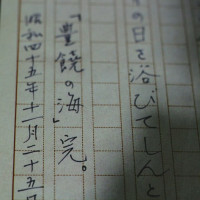 の日を浴びてしんと
「豊饒の海」完。
昭和四十五年十一月二十五日